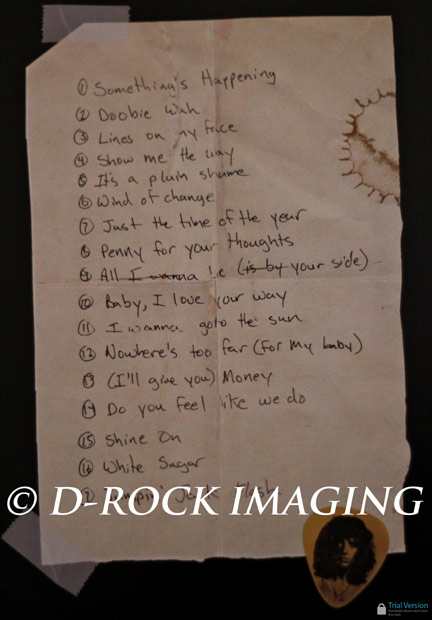 ① Something's Happening
② Doobie Wah
③ Lines on my face
④ Show me the way
⑤ It's a plain shame
⑥ Wind of change
⑦ Just the time of the year
⑧ Penny for your thoughts
⑨ All I wanna be (is by your side)
⑩ Baby, I love your way
⑪ I wanna goto the sun
⑫ Nowhere's too far (for my baby)
⑬ (I'll give you) Money
⑭ Do you feel like we do
⑮ Shine On
⑯ White Sugar
Jumpin' Jack Flash
© D-ROCK IMAGING
Trial Version